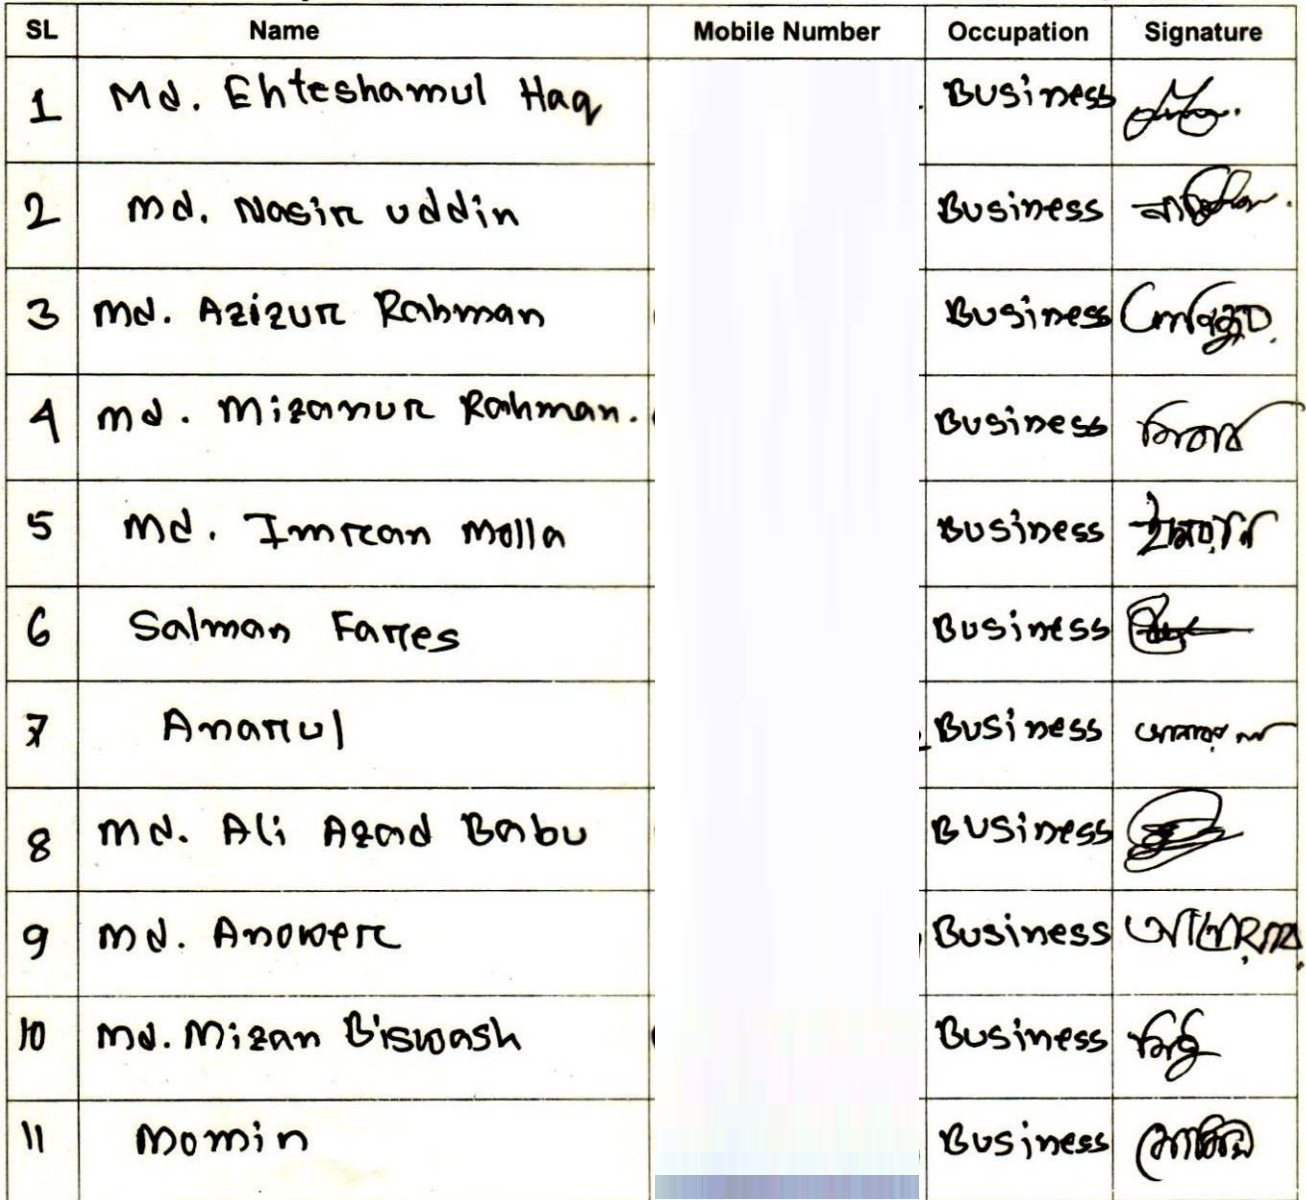 SL Name Mobile Number Occupation Signature
1 Md. Ehteshamul Haq Business
2 Md. Nasir uddin Business
3 Md. Azizur Rahman Business
4 Md. Mizanur Rahman. Business
5 Md. Imran Molla Business ইমরান
6 Salman Farres Business
7 Anarul Business
8 Md. Ali Azad Babu Business
9 Md. Anower Business
10 Md. Mizan Biswash Business
11 Momin Business